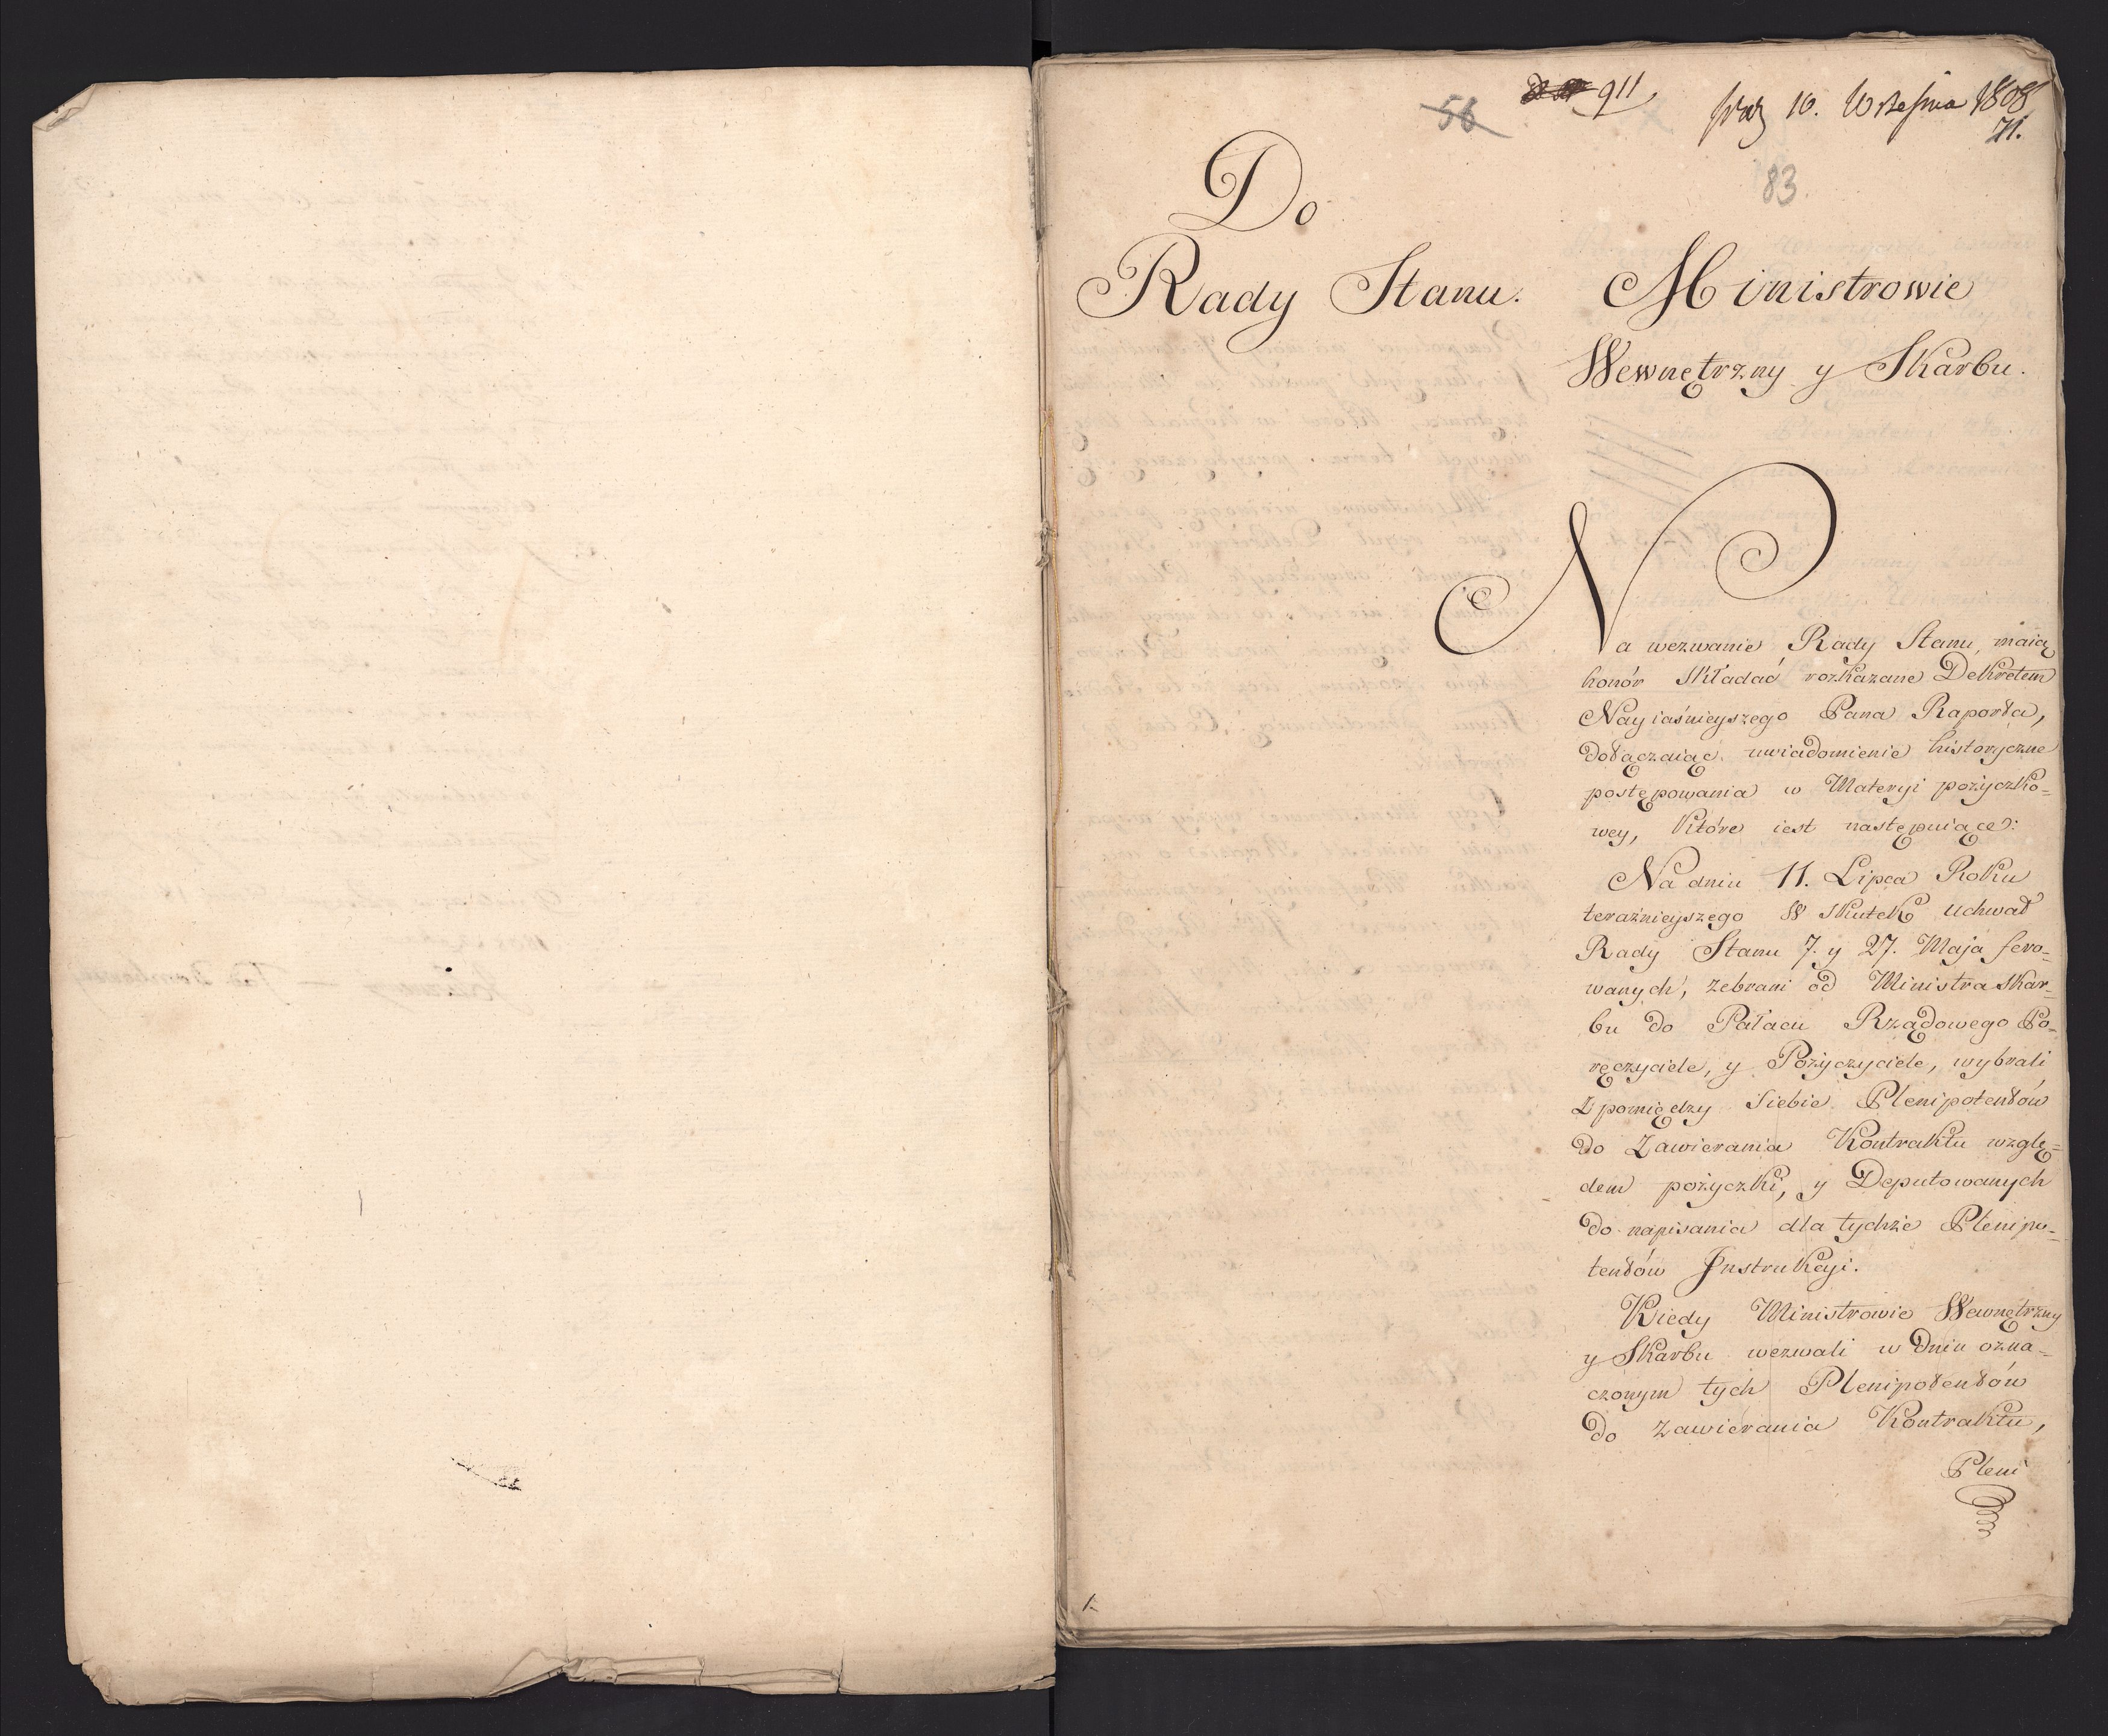 56
911
prez 10. Września 1808
71.
83.
Do
Rady Stanu.
Ministrowie
Wewnętrzny y Skarbu.
Na wezwanie Rady Stanu, maią
honór składać rozkazane Dekretem
Nayiaśnieyszego Pana Raporta,
dołączaiąc uwiadomienie historyczne
postępowania w Materyi pożyczko=
wey, które iest następuiące:
Na dniu 11. Lipca Roku
teraźnieyszego w skutek Uchwał
Rady Stanu 7. y 27. Maja fero=
wanych, zebrani od Ministra Skar=
bu do Pałacu Rządowego Po=
ręczyciele, y Pożyczyciele, wybrali
z pomiędzy siebie Plenipotentów
do zawierania Kontraktu wzglę=
dem pożyczki, y Deputowanych
do napisania dla tychże Plenipo=
tentów Instrukcyi.
Kiedy Ministrowie Wewnętrzny
y Skarbu wezwali w Dniu ozna=
czonym tych Plenipotentów
do zawierania Kontraktu,
Pleni
1.